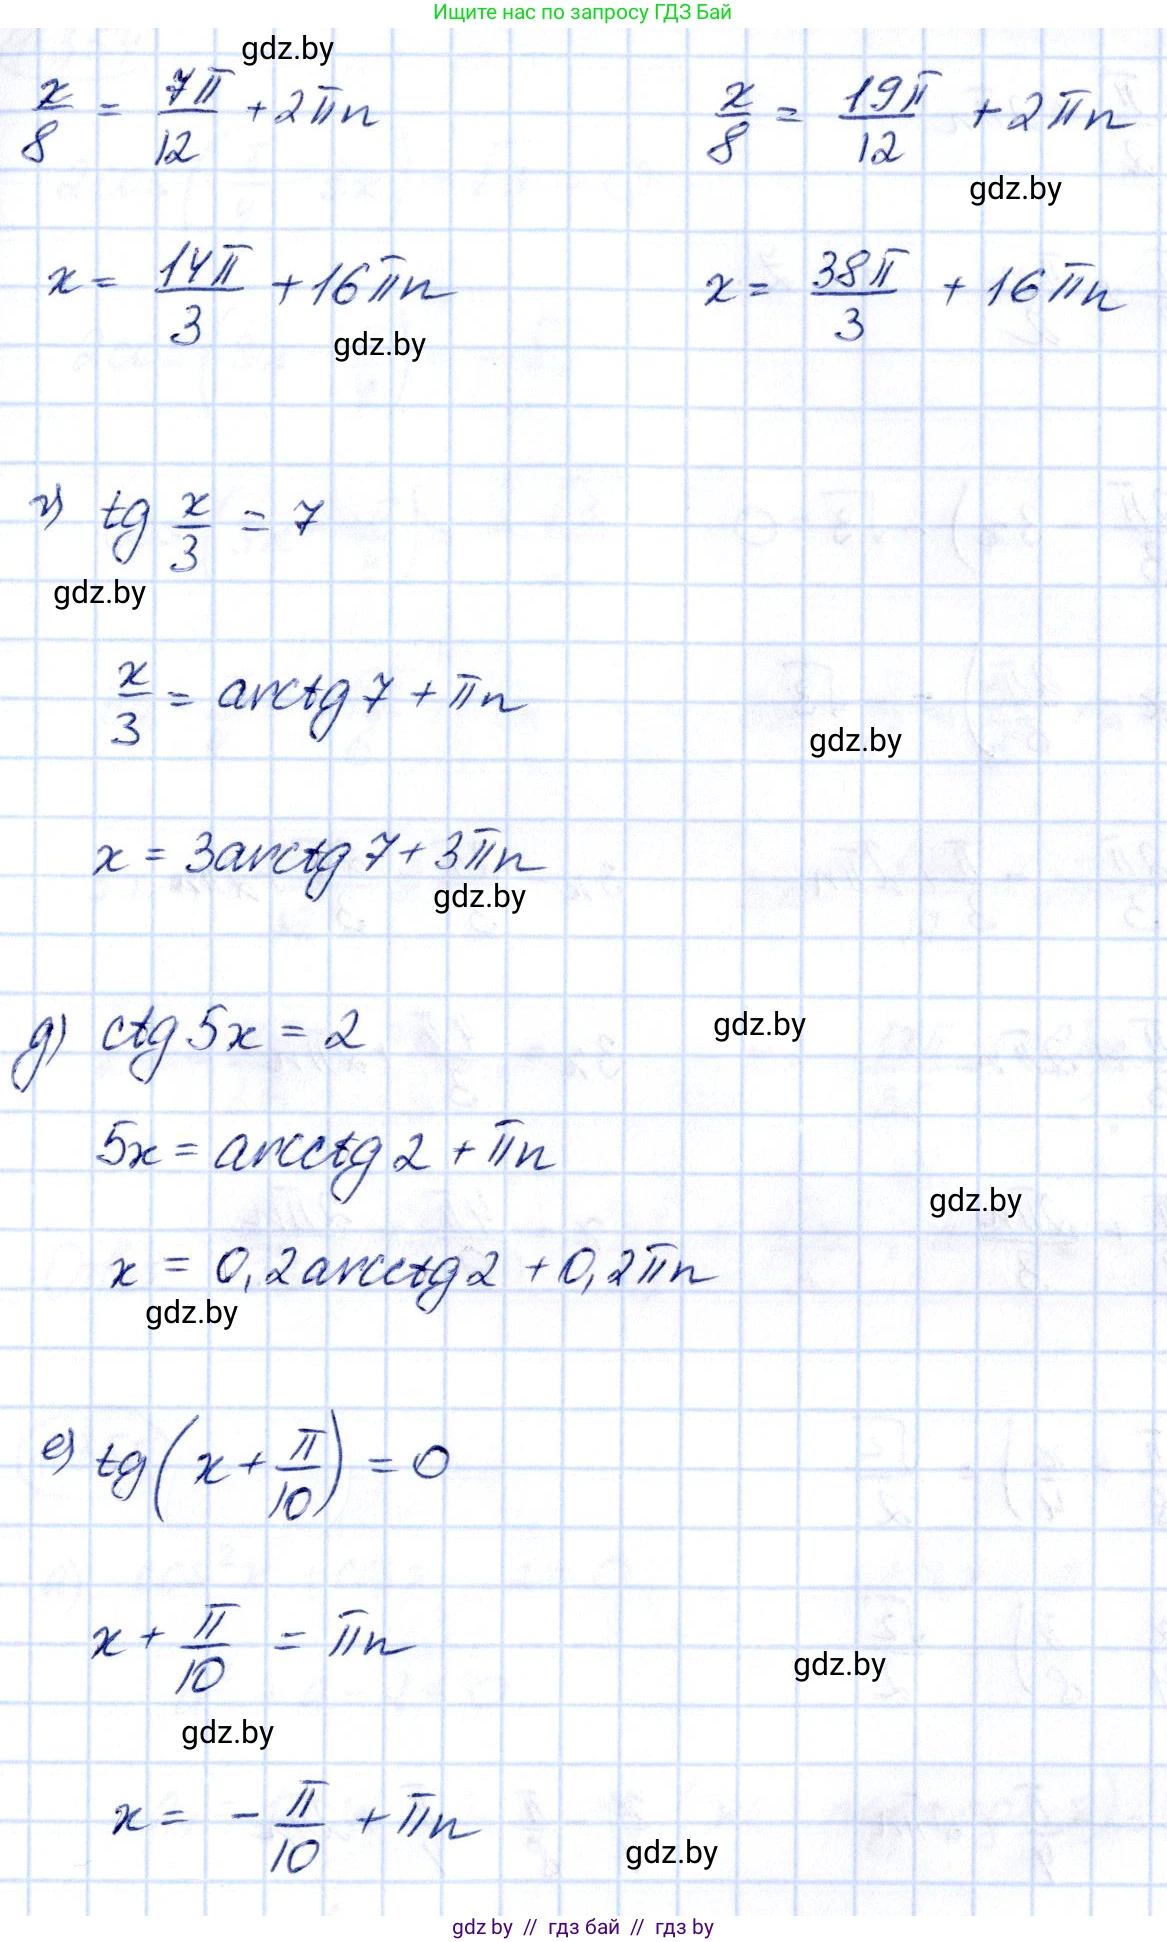 Ищите нас по запросу ГДЗ Бай
gdz.by
x/8 = 7π/12 + 2πn    x/8 = 19π/12 + 2πn
gdz.by
x = 14π/3 + 16πn    x = 38π/3 + 16πn
gdz.by
г) tg x/3 = 7
gdz.by
x/3 = arctg 7 + πn
gdz.by
x = 3arctg 7 + 3πn
gdz.by
gdz.by
д) ctg 5x = 2
5x = arcctg 2 + πn
gdz.by
x = 0,2arcctg 2 + 0,2πn
gdz.by
е) tg(x + π/10) = 0
x + π/10 = πn
gdz.by
gdz.by
x = - π/10 + πn
gdz.by
gdz by // гдз бай // гдз by